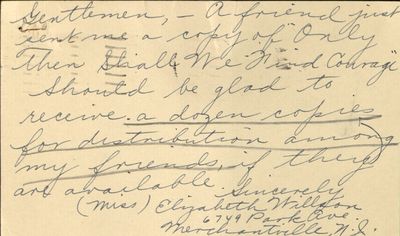 Gentlemen, — A friend just
sent me a copy of "Only
Then Shall We Find Courage"
Should be glad to
receive a dozen copies
for distribution among
my friends, if they
are available. Sincerely
(Miss) Elizabeth
6749 Park Ave.
Merchantville, N.J.